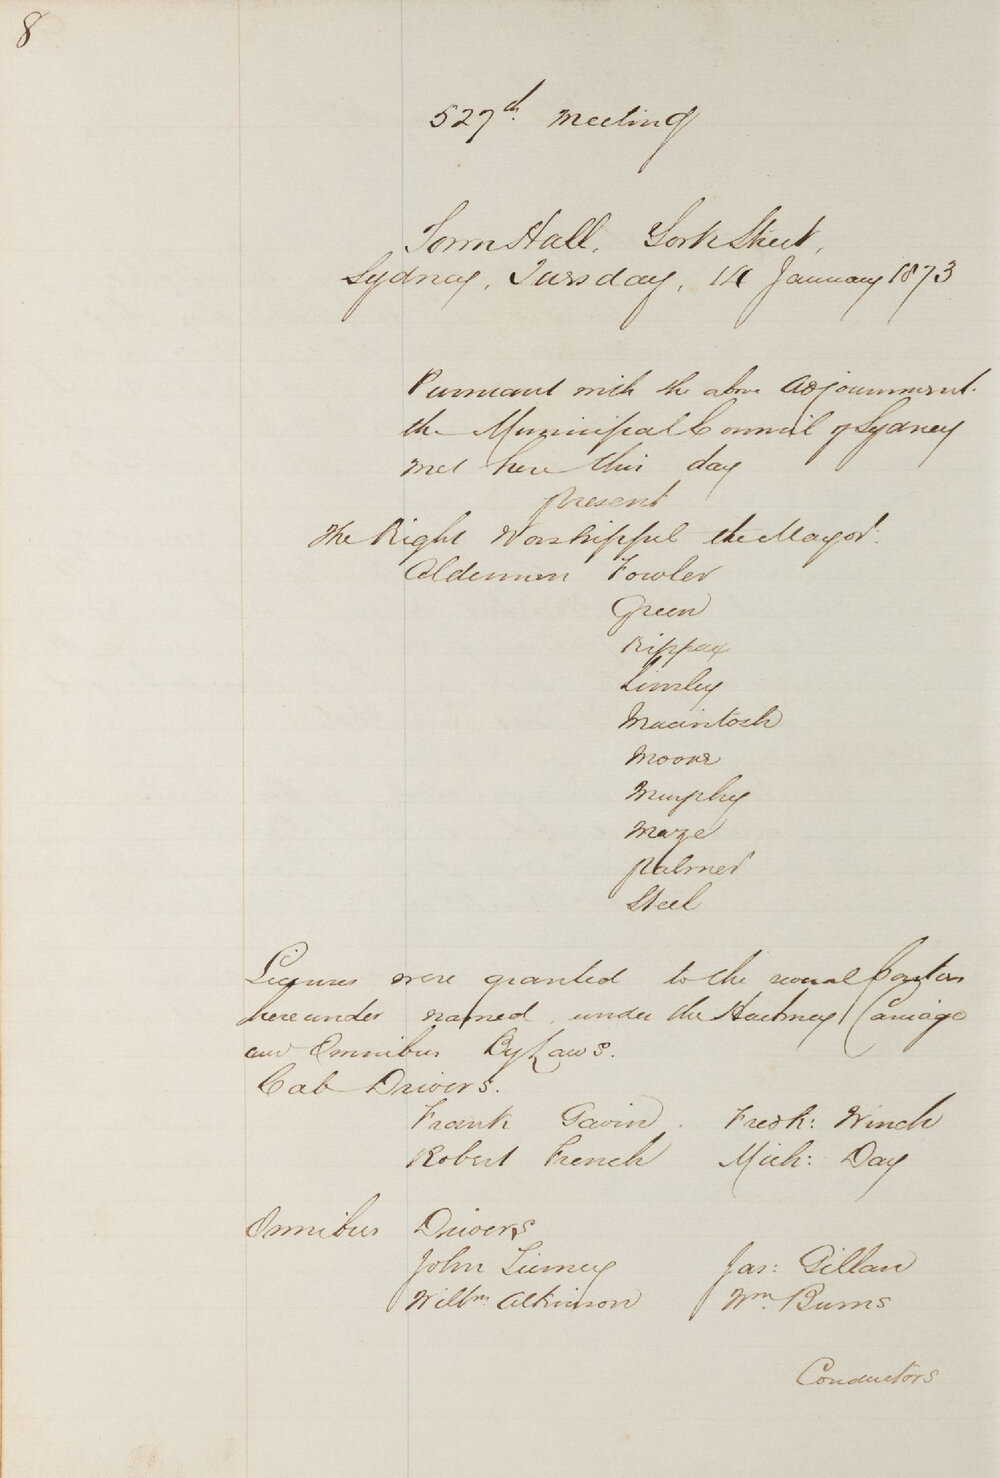 8
527th. Meeting
Town Hall, York Street,
Sydney, Tuesday, 14 January 1873
Pursuant with the above Adjournment
the Municipal Council of Sydney
met here this day
present
The Right Worshipful the Mayor.
Aldermen Fowler
Green
Kippax
Linsley
Macintosh
Moore
Murphy
Maze
Palmer
Steel
Licenses were granted to the several
hereunder named, under the Hackney Carriage
and Omnibus By Laws.
Cab Drivers.
Frank Gavin. Fredk: Winch
Robert French Mich: Day
Omnibus Drivers
John Tierney Jas: Gillan
Willm. Atkinson Wm. Burns
Conductors